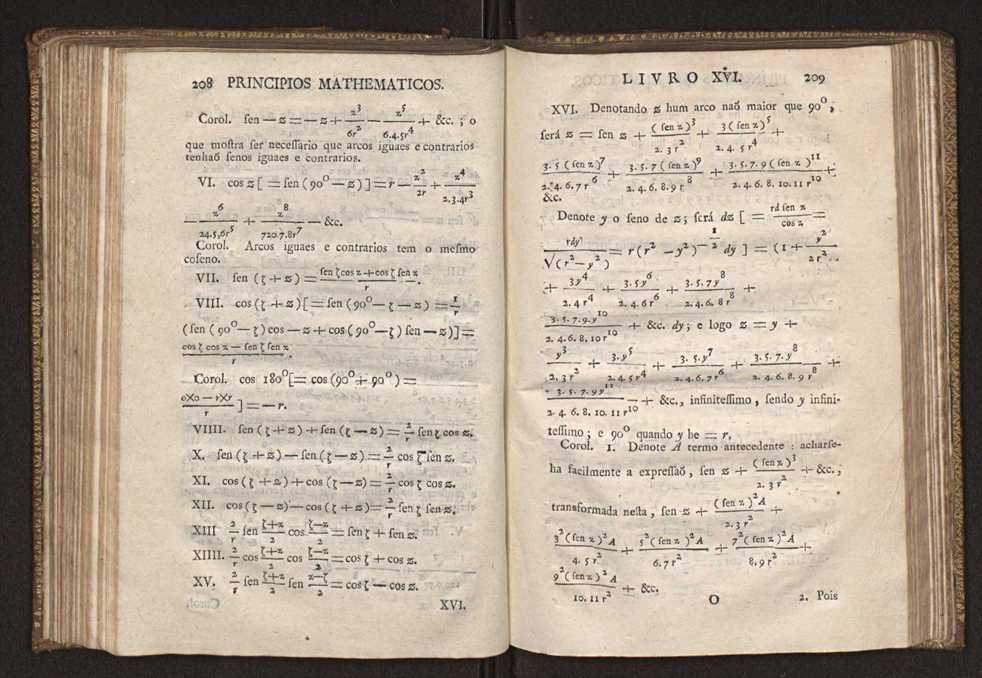 208 PRINCIPIOS MATHEMATICOS.
Corol. ſen — z = — z + z³/6r² — z⁵/6.4.5r⁴ + &c. ; o
que moſtra ſer neceſſario que arcos iguaes e contrarios
tenhaõ ſenos iguaes e contrarios.
VI. cos z [ = ſen (90⁰ — z) ] = r — z²/2r + z⁴/2.3.4r³
— z⁶/24.5.6r⁵ + z⁸/720.7.8r⁷ — &c.
Corol. Arcos iguaes e contrarios tem o meſmo
coſeno.
VII. ſen (ζ + z) = (ſen ζ cos z + cos ζ ſen z)/r .
VIII. cos (ζ + z) [ = ſen (90⁰ — ζ — z) = 1/r
(ſen (90⁰ — ζ) cos — z + cos (90⁰ — ζ) ſen — z) ] =
(cos ζ cos z — ſen ζ ſen z)/r .
Corol. cos 180⁰ [ = cos (90⁰ + 90⁰) =
(0X0 — rXr)/r ] = — r.
VIIII. ſen (ζ + z) + ſen (ζ — z) = 2/r ſen ζ cos z.
X. ſen (ζ + z) — ſen (ζ — z) = 2/r cos ζ ſen z.
XI. cos (ζ + z) + cos (ζ — z) = 2/r cos ζ cos z.
XII. cos (ζ — z) — cos (ζ + z) = 2/r ſen ζ ſen z.
XIII 2/r ſen (ζ+z)/2 cos (ζ—z)/2 = ſen ζ + ſen z.
XIIII. 2/r cos (ζ+z)/2 cos (ζ—z)/2 = cos ζ + cos z.
XV. 2/r ſen (ζ+z)/2 ſen (z—ζ)/2 = cos ζ — cos z.
XVI.
LIVRO XVI. 209
XVI. Denotando z hum arco naõ maior que 90⁰,
ſerá z = ſen z + (ſen z)³/2.3r² + 3(ſen z)⁵/2.4.5r⁴ +
3.5(ſen z)⁷/2.4.6.7r⁶ + 3.5.7(ſen z)⁹/2.4.6.8.9r⁸ + 3.5.7.9(ſen z)¹¹/2.4.6.8.10.11r¹⁰ +
&c.
Denote y o ſeno de z; ſerá dz [ = rd ſen z/cos z =
rdy/√(r²—y²) = r(r² — y²)^(—1/2) dy ] = (1 + y²/2r²
+ 3y⁴/2.4r⁴ + 3.5y⁶/2.4.6r⁶ + 3.5.7y⁸/2.4.6.8r⁸ +
3.5.7.9.y¹⁰/2.4.6.8.10r¹⁰ + &c. dy; e logo z = y +
y³/2.3r² + 3.y⁵/2.4.5r⁴ + 3.5.y⁷/2.4.6.7r⁶ + 3.5.7.y⁹/2.4.6.8.9r⁸ +
3.5.7.9y¹¹/2.4.6.8.10.11r¹⁰ + &c., infiniteſſimo, ſendo y infini-
teſſimo; e 90⁰ quando y he = r.
Corol. 1. Denote A termo antecedente : acharſe-
ha facilmente a expreſſaõ, ſen z + (ſen z)³/2.3r² + &c.,
transformada neſta, ſen z + (ſen z)²A/2.3r² +
3²(ſen z)²A/4.5r² + 5²(ſen z)²A/6.7r² + 7²(ſen z)²A/8.9r² +
9²(ſen z)²A/10.11r² + &c.
O 2. Pois